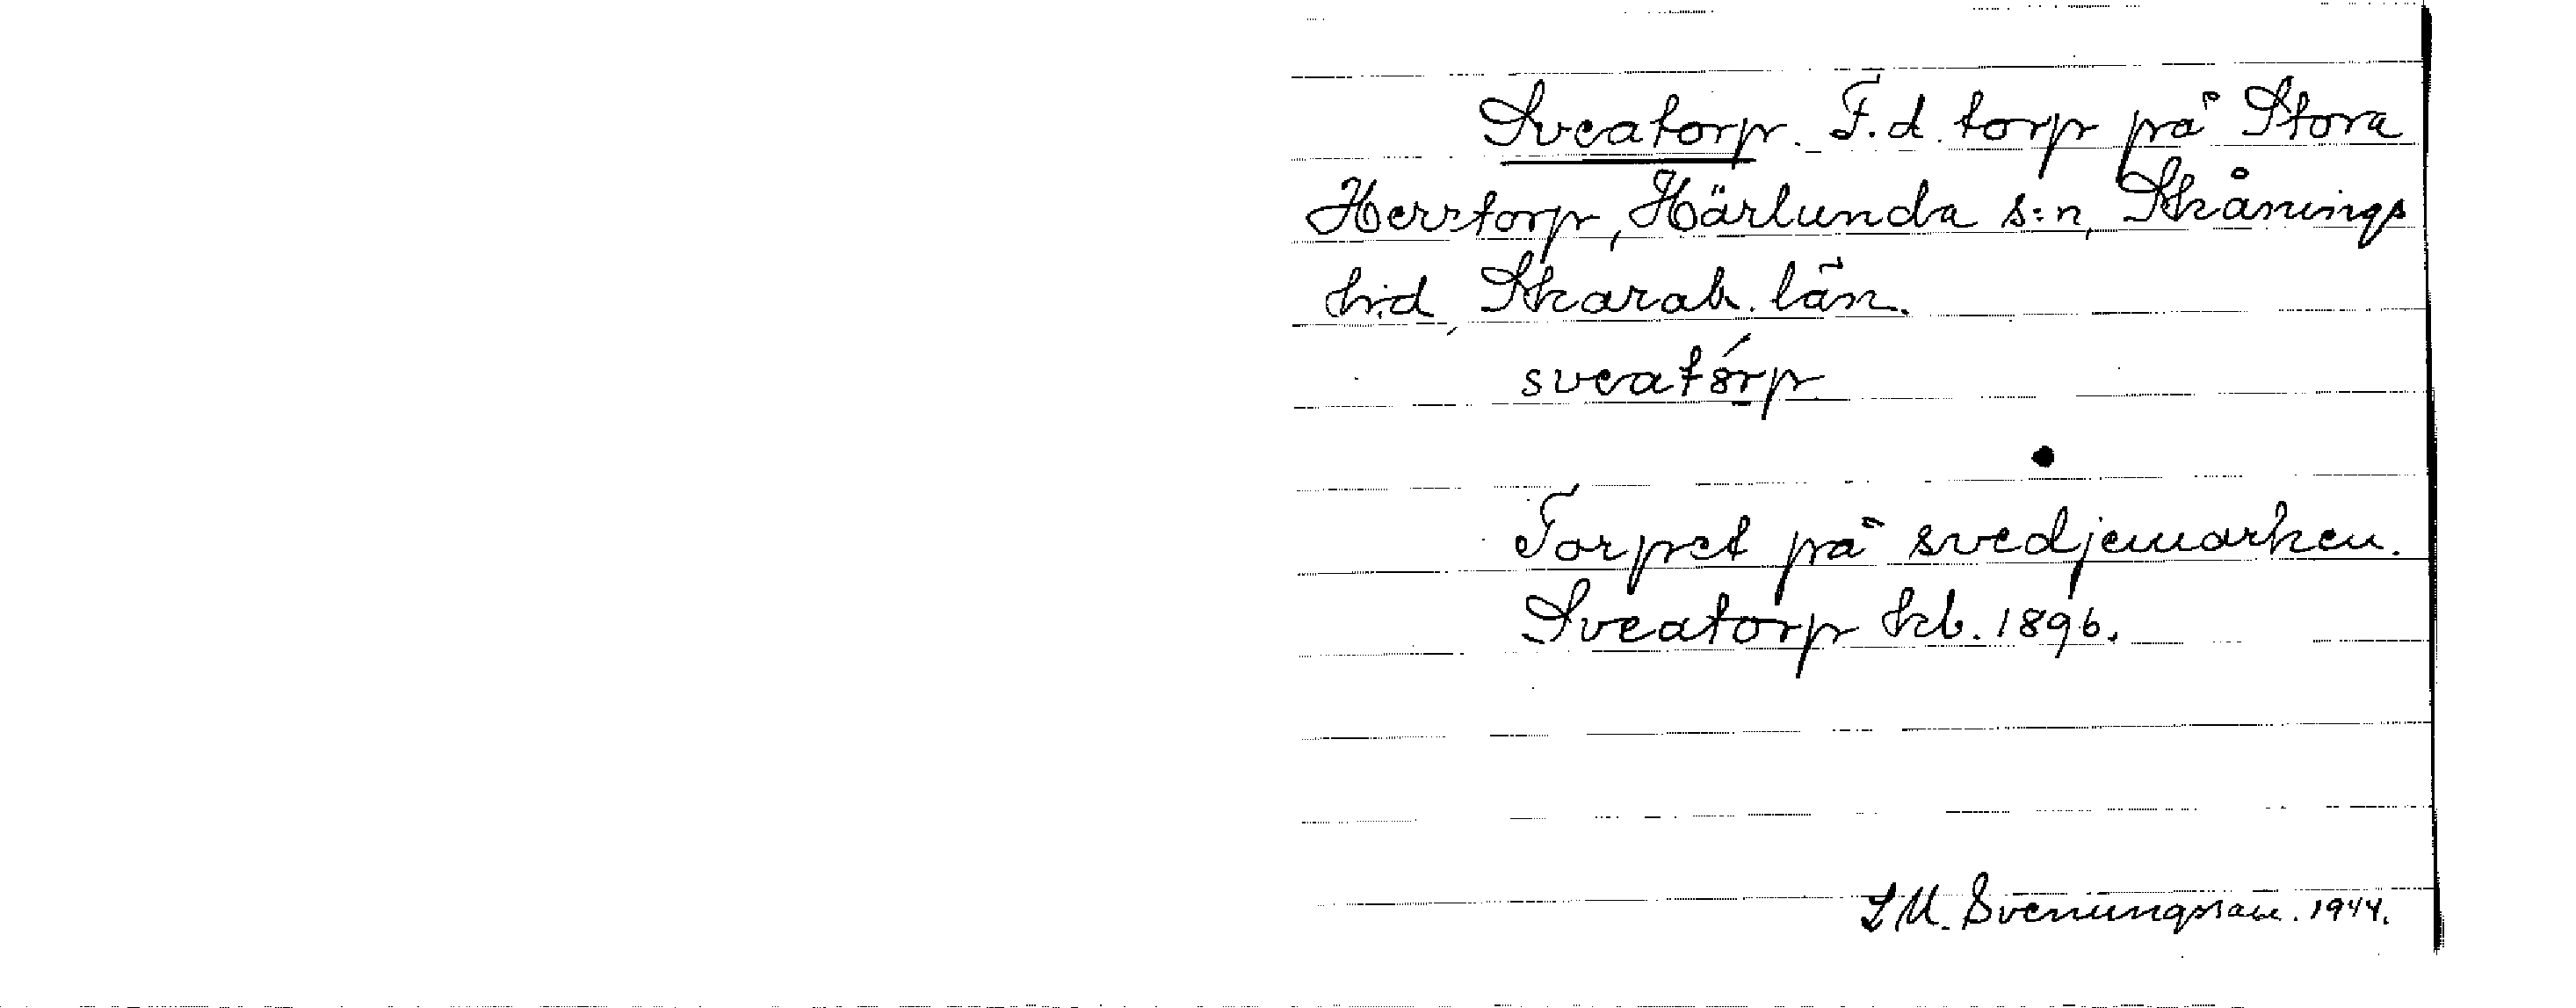 Sveatorp. F.d. torp på Stora
Herrtorp, Härlunda s:n, Skånings
h:d, Skarab. län.
sveatórp
Torpet på svedjemarken.
Sveatorp kb. 1896.
S M. Svenungsson. 1944.